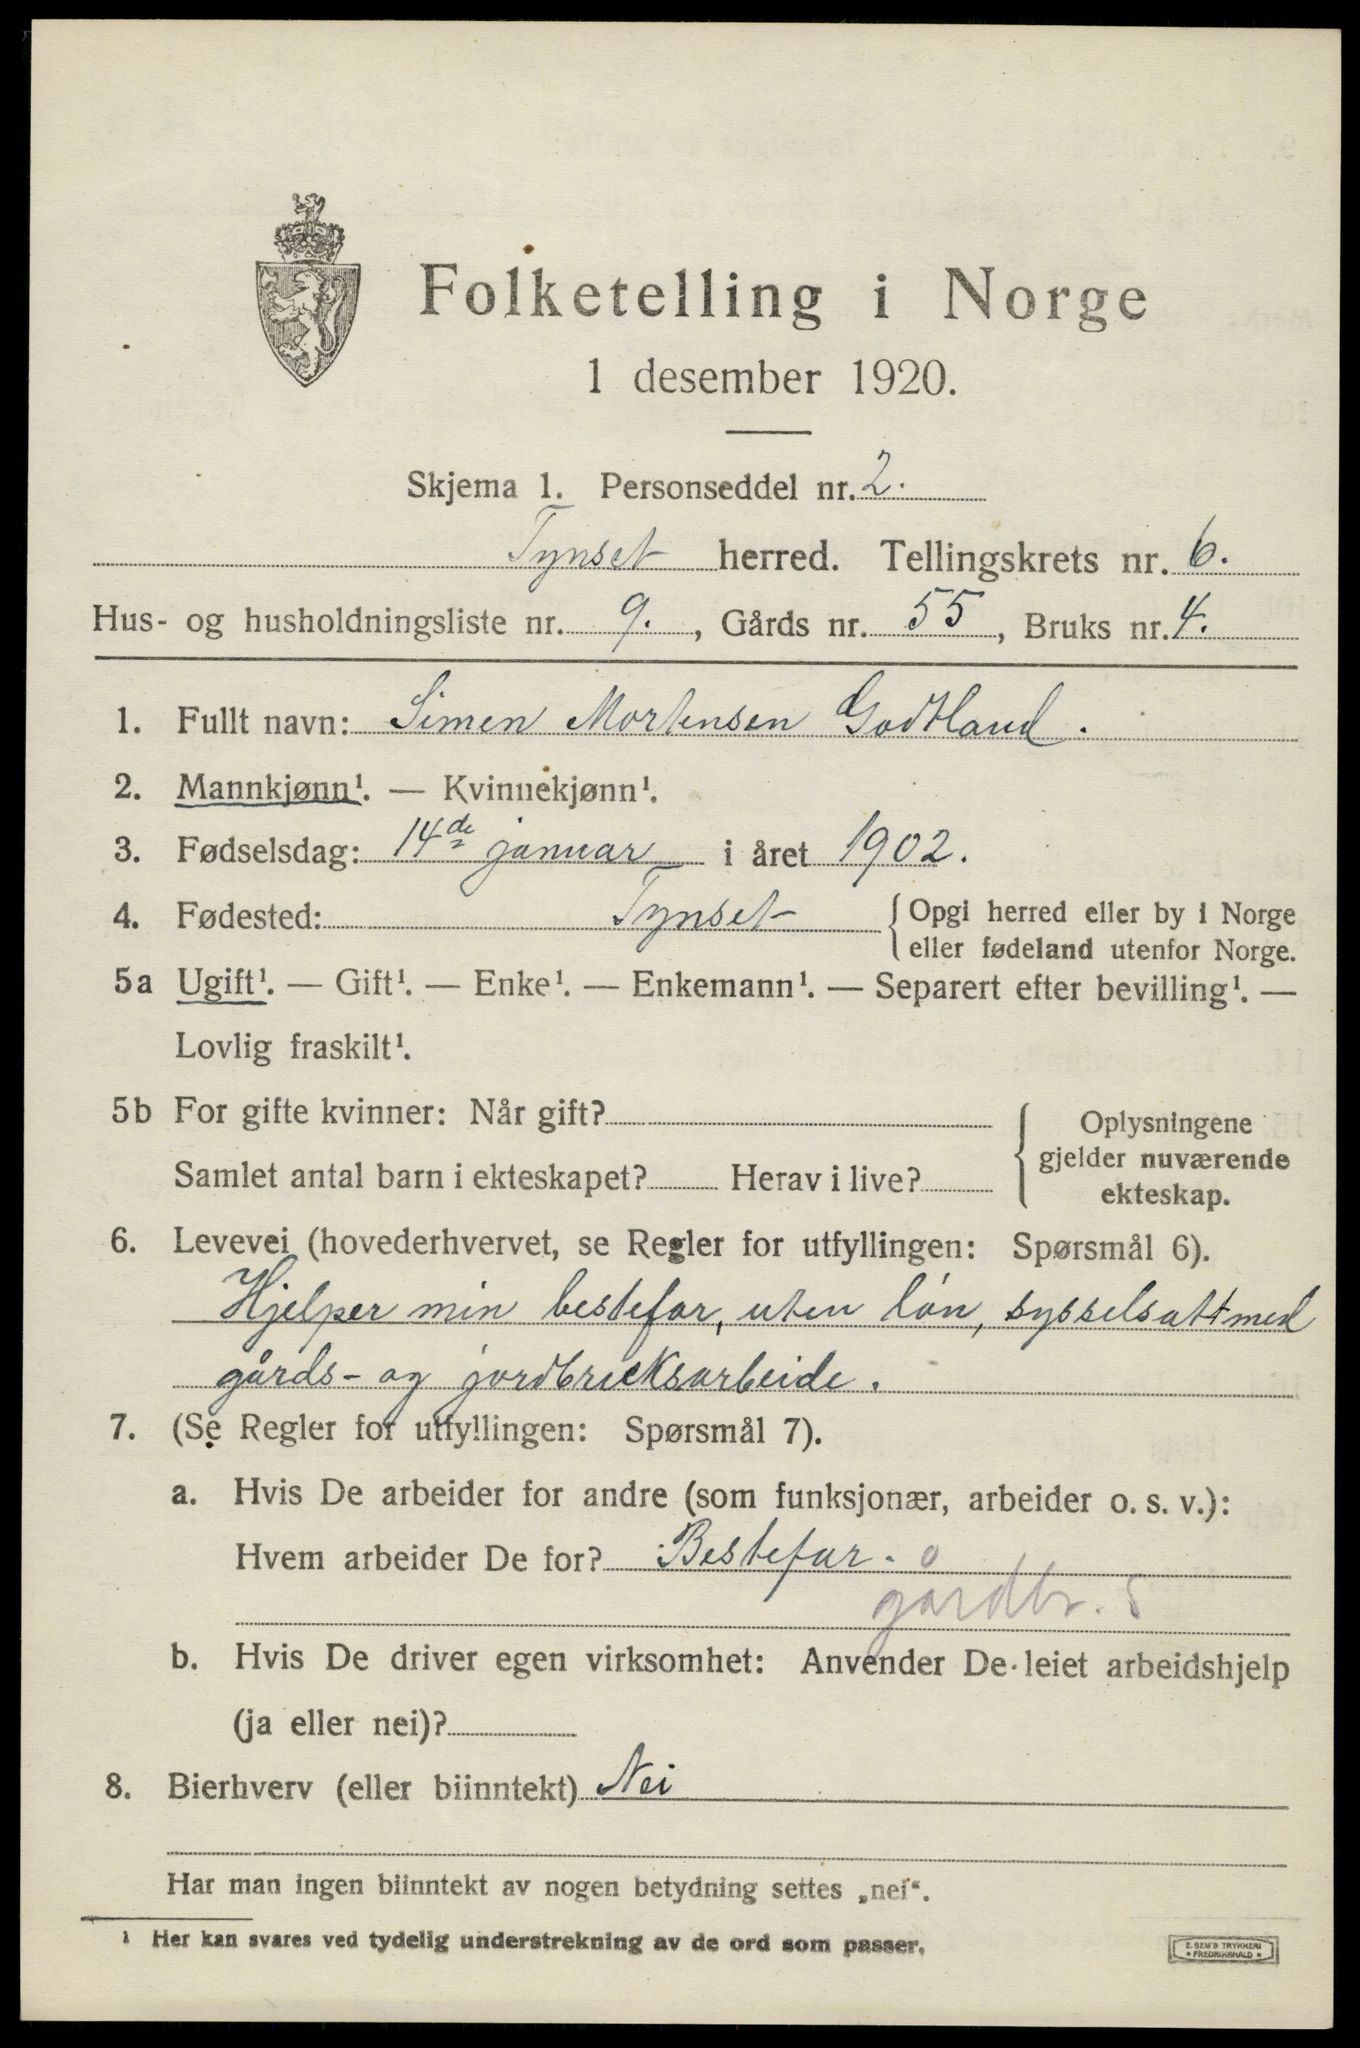 Folketelling i Norge
1 desember 1920.
Skjema 1. Personseddel nr. 2.
Tynset herred. Tellingskrets nr. 6.
Hus- og husholdningsliste nr. 9., Gårds nr. 55, Bruks nr. 4.
1. Fullt navn: Simen Mortensen Godtland.
2. Mannkjønn¹. — Kvinnekjønn¹.
3. Fødselsdag: 14de januar i året 1902.
4. Fødested: Tynset { Opgi herred eller by i Norge
eller fødeland utenfor Norge.
5a Ugift¹. — Gift¹. — Enke¹. — Enkemann¹. — Separert efter bevilling¹. —
Lovlig fraskilt¹.
5b For gifte kvinner: Når gift?
Samlet antal barn i ekteskapet? Herav i live?
{ Oplysningene
gjelder nuværende
ekteskap.
6. Levevei (hovederhvervet, se Regler for utfyllingen: Spørsmål 6).
Hjelper min bestefar, uten løn, sysselsatt med
gårds- og jordbruksarbeide.
7. (Se Regler for utfyllingen: Spørsmål 7).
a. Hvis De arbeider for andre (som funksjonær, arbeider o. s. v.):
Hvem arbeider De for? Bestefar.
gårdbr. s
b. Hvis De driver egen virksomhet: Anvender De leiet arbeidshjelp
(ja eller nei)?
8. Bierhverv (eller biinntekt) Nei
Har man ingen biinntekt av nogen betydning settes „nei“.
¹ Her kan svares ved tydelig understrekning av de ord som passer.
E. SEM'S TRYKKERI
• FREDRIKSHALD •